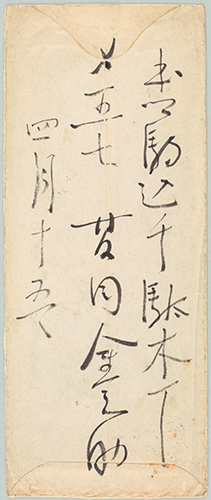 本郷駒込千駄木丁
〆五七 夏目金之助
四月十五日